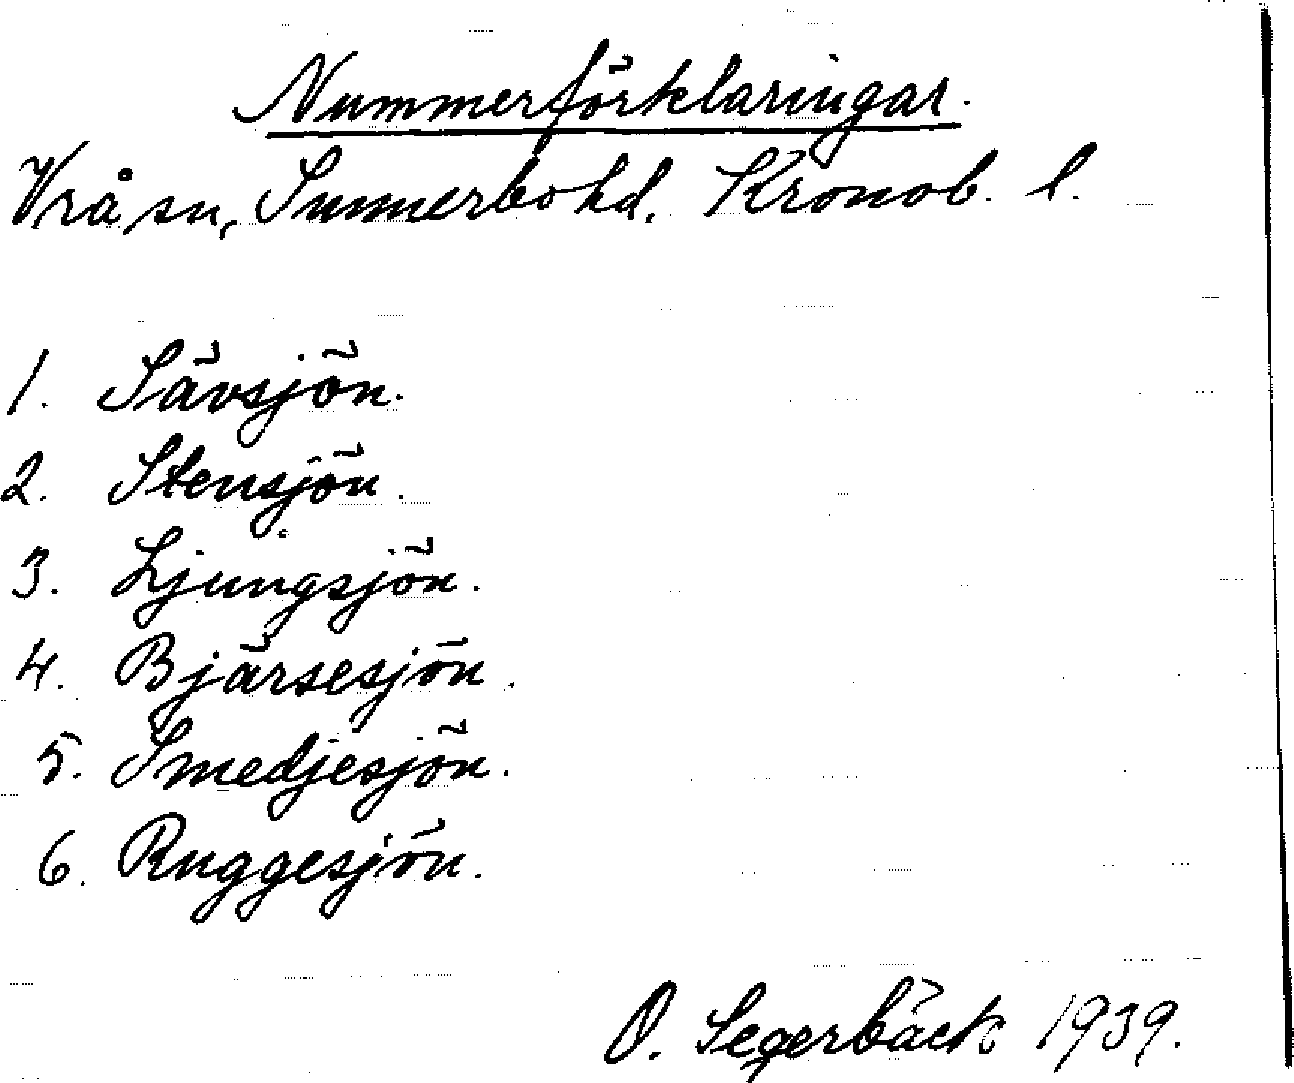 Nummerförklaringar.
Vrå sn, Sunnerbo hd. Kronob. l.
1. Sävsjön.
2. Stensjön.
3. Ljungsjön.
4. Bjärsesjön.
5. Smedjesjön.
6. Ruggesjön.
O. Segerbäck 1939.